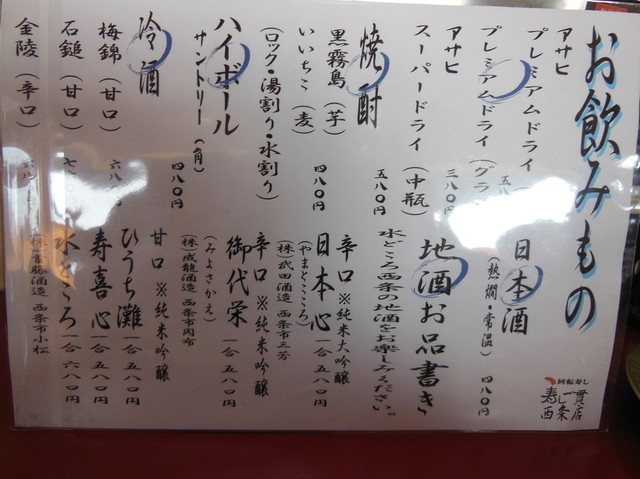 お飲みもの
アサヒ
プレミアムドライ
プレミアムドライ(グラ
アサヒ
スーパードライ(中瓶)
三八〇円
五八〇円
焼酎
黒霧島(芋)
いいちこ(麦)
四八〇円
(ロック・湯割り・水割り)
ハイボール
サントリー(角)
四八〇円
冷酒
梅錦(甘口)
六八〇円
石鎚(甘口)
金陵(辛口)
日本酒
(熱燗・常温)
四八〇円
地酒お品書き
水どころ西条の地酒をお楽しみください。
辛口※純米大吟醸
日本心
一合五八〇円
(やまとごころ)
(株)武田酒造 西条市三芳
辛口※純米吟醸
御代栄
一合五八〇円
(みよさかえ)
(株)成龍酒造 西条市周布
甘口※純米吟醸
ひうち灘
一合五八〇円
寿喜心
一合五八〇円
水どころ
一合六八〇円
酒造 西条市小松
回転寿し
寿し一貫
西条店